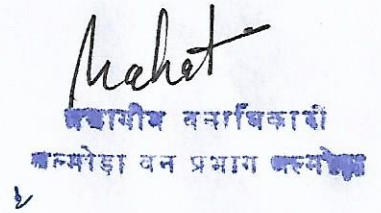 Mahat
प्रभागीय वनाधिकारी
अल्मोड़ा वन प्रभाग अल्मोड़ा